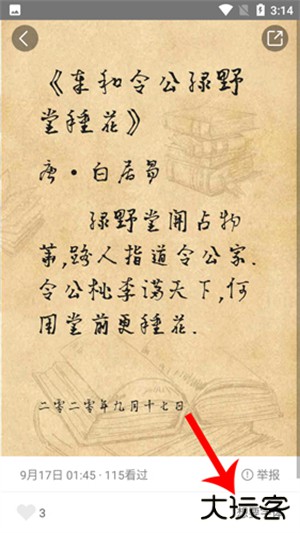 3:14
《奉和令公绿野
堂種花》
唐·白居易
绿野堂開占物
華,路人指道令公家.
令公桃李满天下,何
用堂前更種花.
二零二零年九月十七日
9月17日 01:45 · 115看过
举报
3
大玩客